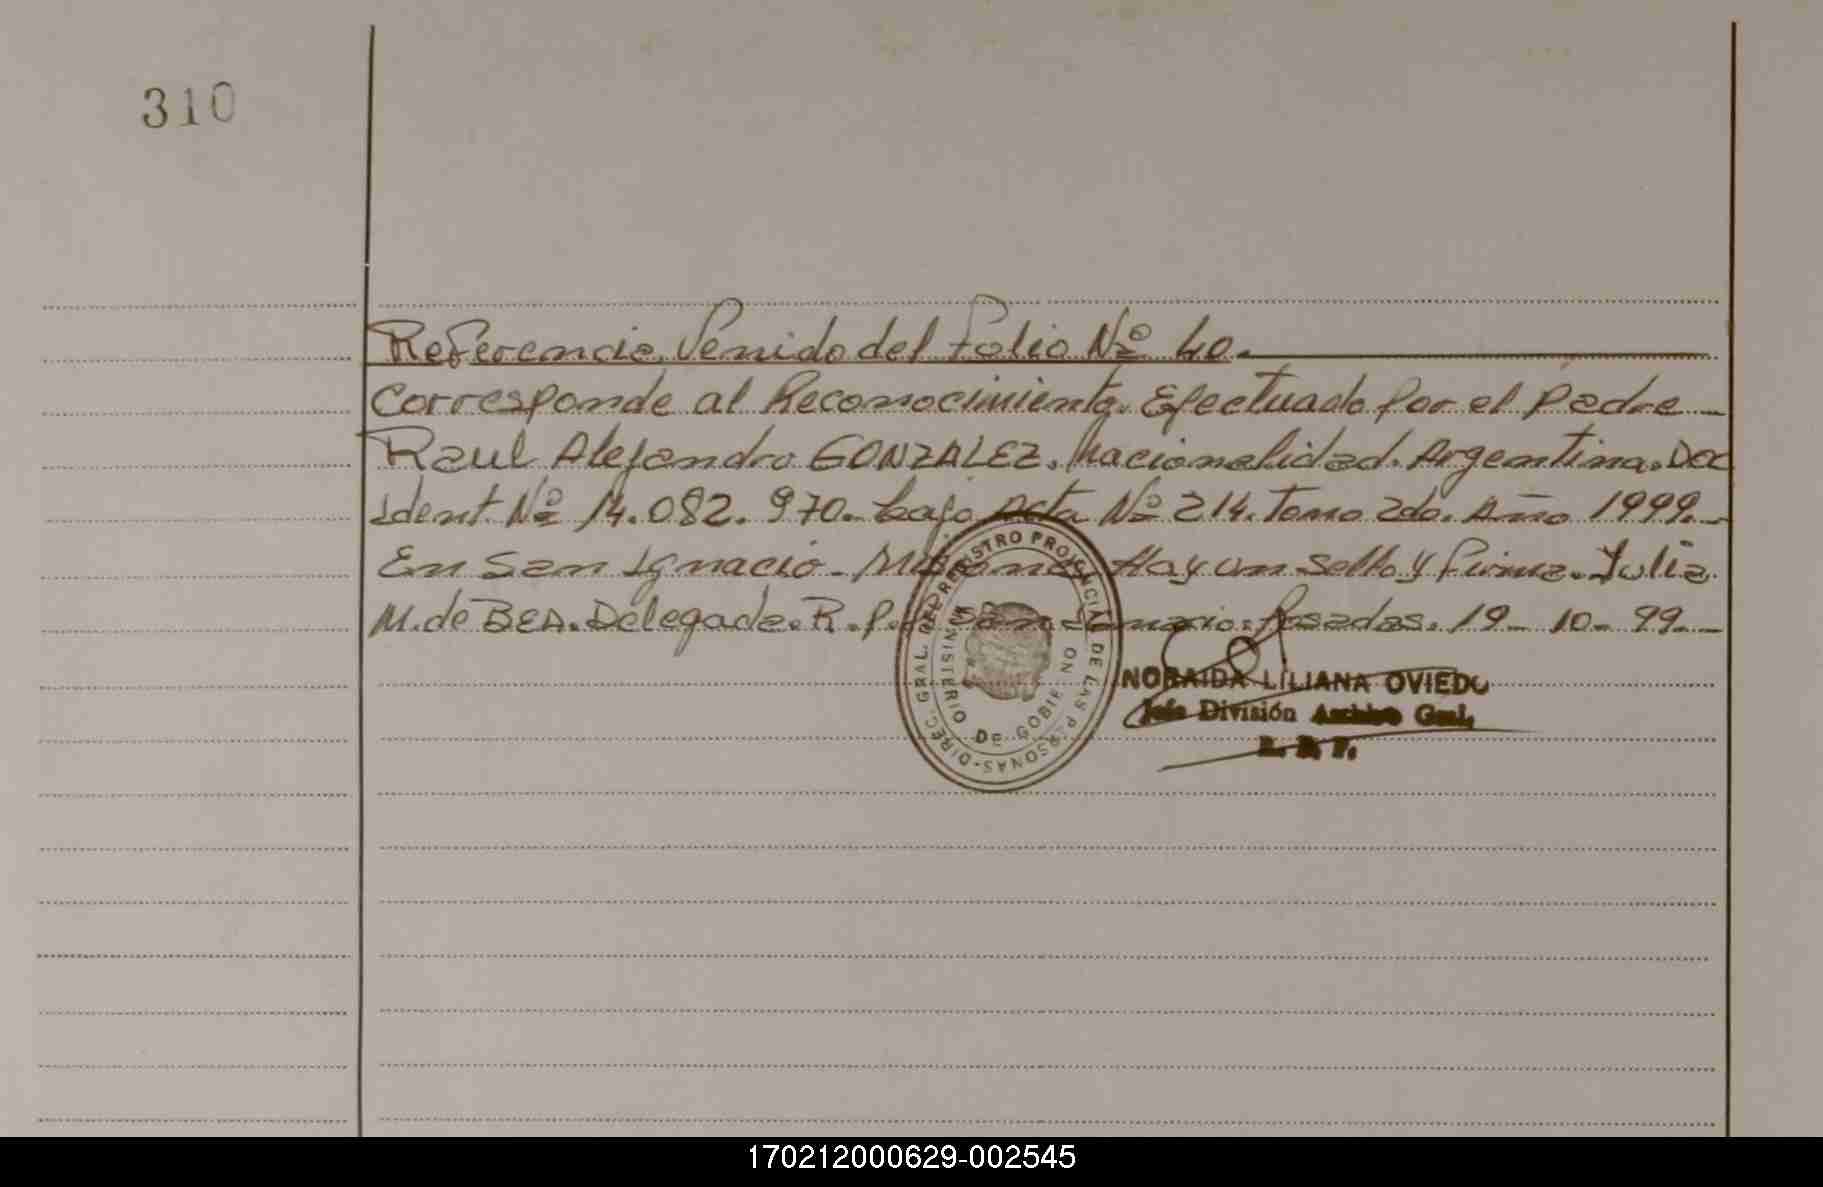 310
Referencia Venido del Folio Nº 40.
Corresponde al Reconocimiento. Efectuado por el Padre
Raul Alejandro GONZALEZ. Nacionalidad. Argentina. Doc
Ident. Nº 14.082.970. bajo Acta Nº 214. Tomo 2do. Año 1999.
En San Ignacio. Misiones. Hay un Sello y firma. Julia
M. de BEA. Delegada. R.P. San Ignacio. Posadas. 19-10-99.
DIREC. GRAL. DEL REGISTRO PROVINCIAL DE LAS PERSONAS
MINISTERIO DE GOBIERNO
NORAIDA LILIANA OVIEDO
Jefe División Archivo Gral.
R. P. P.
170212000629-002545